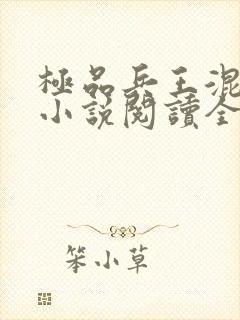 極品兵王混
小說閱讀全
笨小草